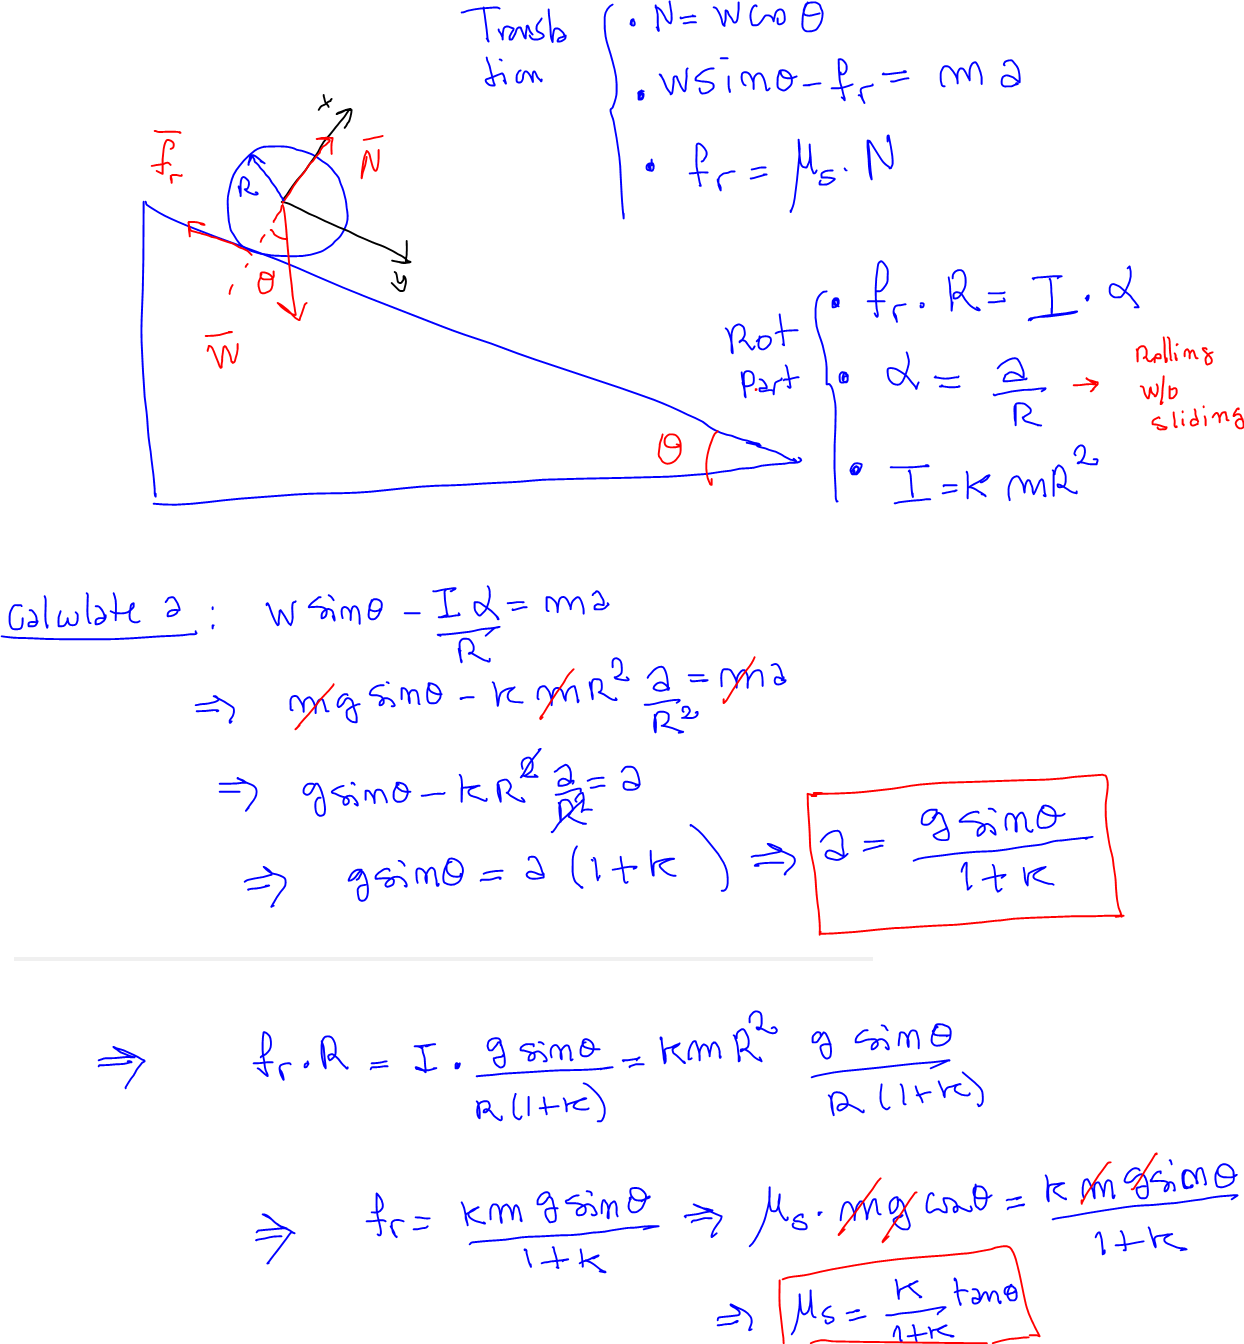 Transla
tion
• N = W cos θ
• W sin θ - fr = m a
• fr = μs. N
x
f̅r
N̅
R
y
θ
W̅
θ
Rot
Part
• fr. R = I. α
• α = a/R → Rolling
w/o
sliding
• I = k mR²
Calculate a : W sin θ - Iα/R = ma
⇒ mg sin θ - k m R² a/R² = ma
⇒ g sin θ - k R² a/R² = a
⇒ g sin θ = a (1+k) ⇒ a = g sin θ/(1+k)
⇒ fr. R = I . g sin θ/R(1+k) = k m R² g sin θ/R(1+k)
⇒ fr = k m g sin θ/(1+k) ⇒ μs. mg cos θ = k m g sin θ/(1+k)
⇒ μs = k/(1+k) tan θ